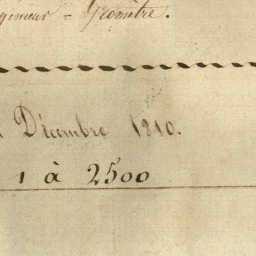 Géomètre.
Décembre 1810.
1 à 2500